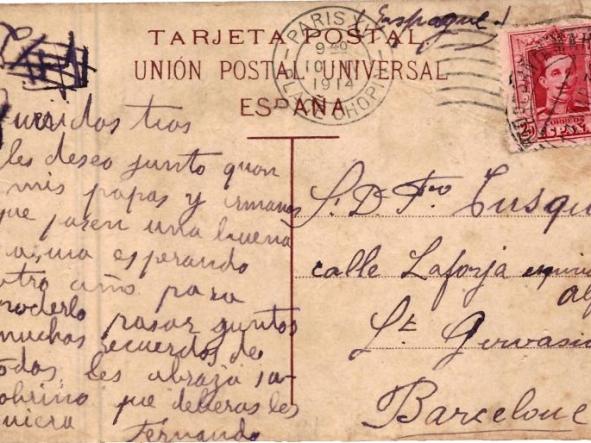 (Espagne)
TARJETA POSTAL
UNIÓN POSTAL UNIVERSAL
ESPAÑA
PARIS
9 40
10
1914
PLACE CHOPIN
CORREOS
ESPAÑA
Queridos tios
les deseo junto quon
mis papas y ermanos
que pasen una buena
esperando
otro año para
poderlo pasar juntos
muchos recuerdos de
todos les abraza su
sobrino que deberas les
quiera
Fernando
S. D. Fco Tusqu
calle Laforja esquina
St Gervasi
Barcelone